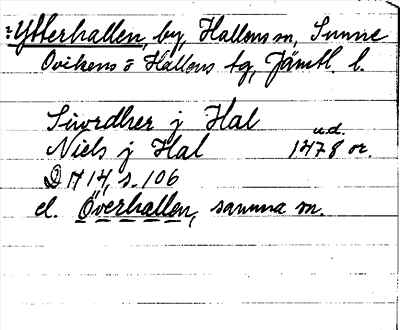 :Ytterhallen, by, Hallens sn, Sunne
Ovikens o Hallens tg, Jämtl. l.
Siwrdher j Hal
Niels j Hal u.d. 1478 or.
DN 14, s. 106
el. Överhallen, samma sn.